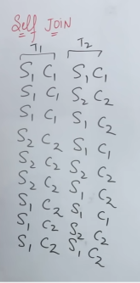 Self JOIN
T1 T2
S1 C1 S1 C1
S1 C1 S2 C2
S1 C1 S1 C2
S2 C2 S1 C1
S2 C2 S2 C2
S2 C2 S1 C2
S1 C2 S1 C1
S1 C2 S2 C2
S1 C2 S1 C2